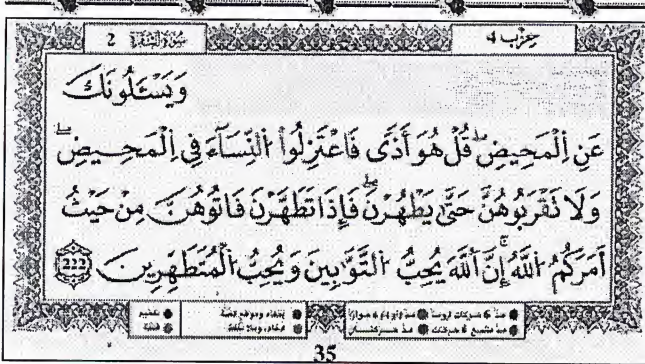 حِزْب 4 سُورَةُ الْبَقَرَةِ 2
وَيَسْـَٔلُونَكَ
عَنِ اِلْمَحِيضِۖ قُلْ هُوَ أَذًى فَاعْتَزِلُواْ النِّسَآءَ فِي اِلْمَحِيضِۖ
وَلَا تَقْرَبُوهُنَّ حَتَّىٰ يَطْهُرْنَۖ فَإِذَا تَطَهَّرْنَ فَاتُوهُنَّ مِنْ حَيْثُ
أَمَرَكُمُ اُللَّهُۚ إِنَّ اَللَّهَ يُحِبُّ التَّوَّٰبِينَ وَيُحِبُّ الْمُتَطَهِّرِينَ 222
35